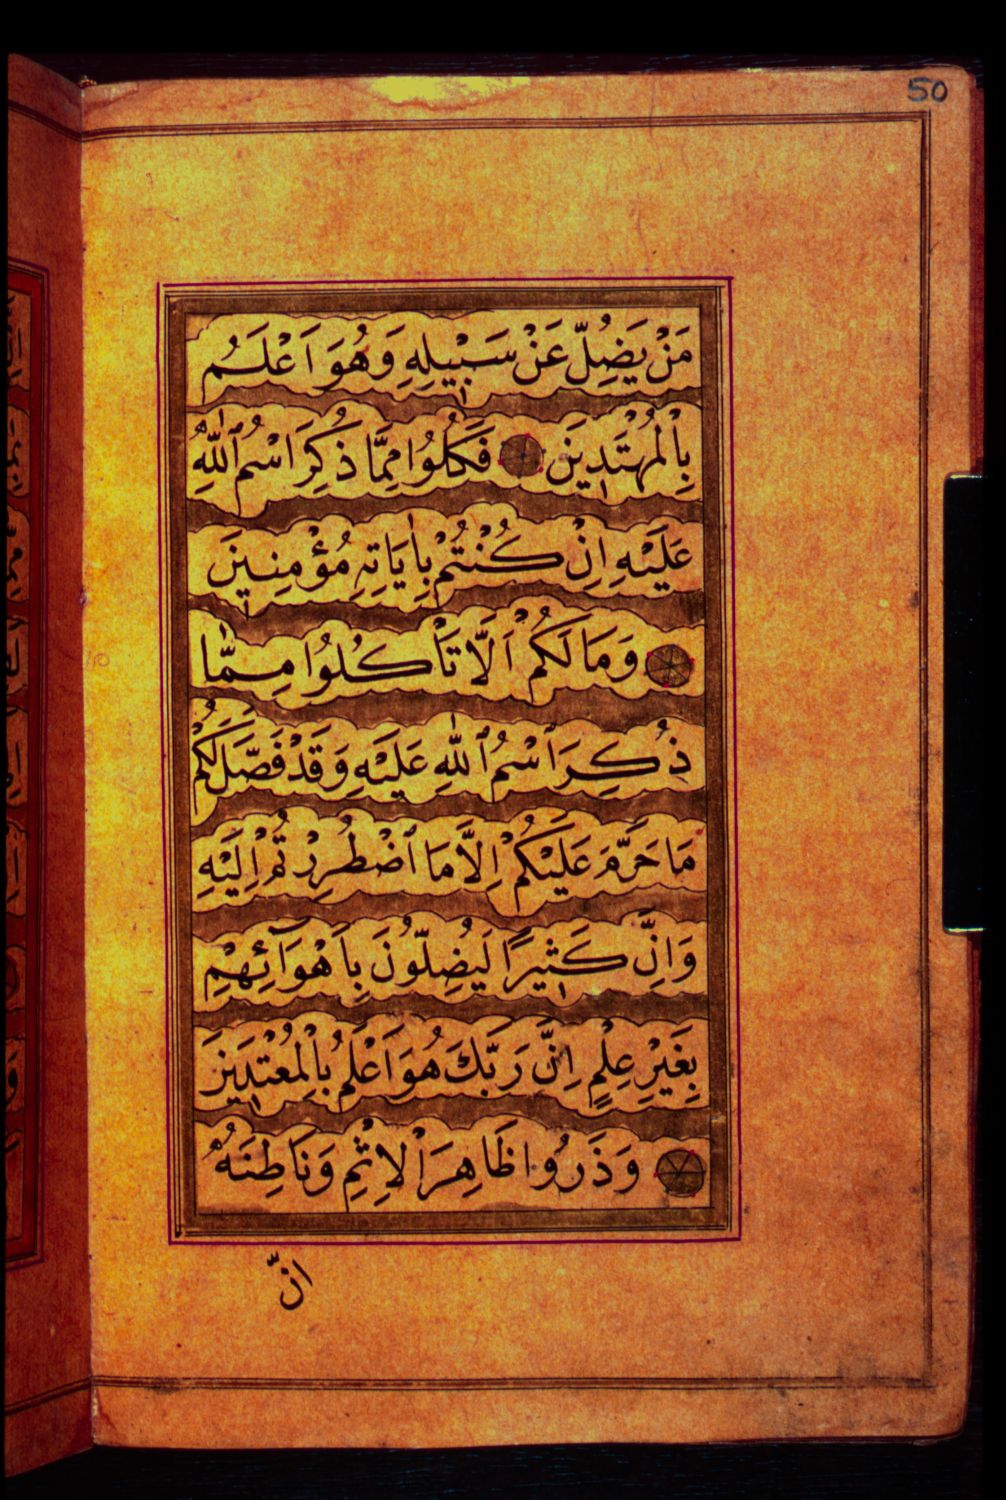 50
مَنْ يَضِلُّ عَنْ سَبِيلِهِ وَهُوَ اَعْلَمُ
بِالْمُهْتَدِينَ فَكُلُوا مِمَّا ذُكِرَ اسْمُ اللّٰهِ
عَلَيْهِ اِنْ كُنْتُمْ بِاٰيَاتِهِ مُؤْمِنِينَ
وَمَا لَكُمْ اَلَّا تَأْكُلُوا مِمَّا
ذُكِرَ اسْمُ اللّٰهِ عَلَيْهِ وَقَدْ فَصَّلَ لَكُمْ
مَا حَرَّمَ عَلَيْكُمْ اِلَّا مَا اضْطُرِرْتُمْ اِلَيْهِ
وَاِنَّ كَثِيرًا لَيُضِلُّونَ بِاَهْوَآئِهِمْ
بِغَيْرِ عِلْمٍ اِنَّ رَبَّكَ هُوَ اَعْلَمُ بِالْمُعْتَدِينَ
وَذَرُوا ظَاهِرَ الْاِثْمِ وَبَاطِنَهُ
انّ